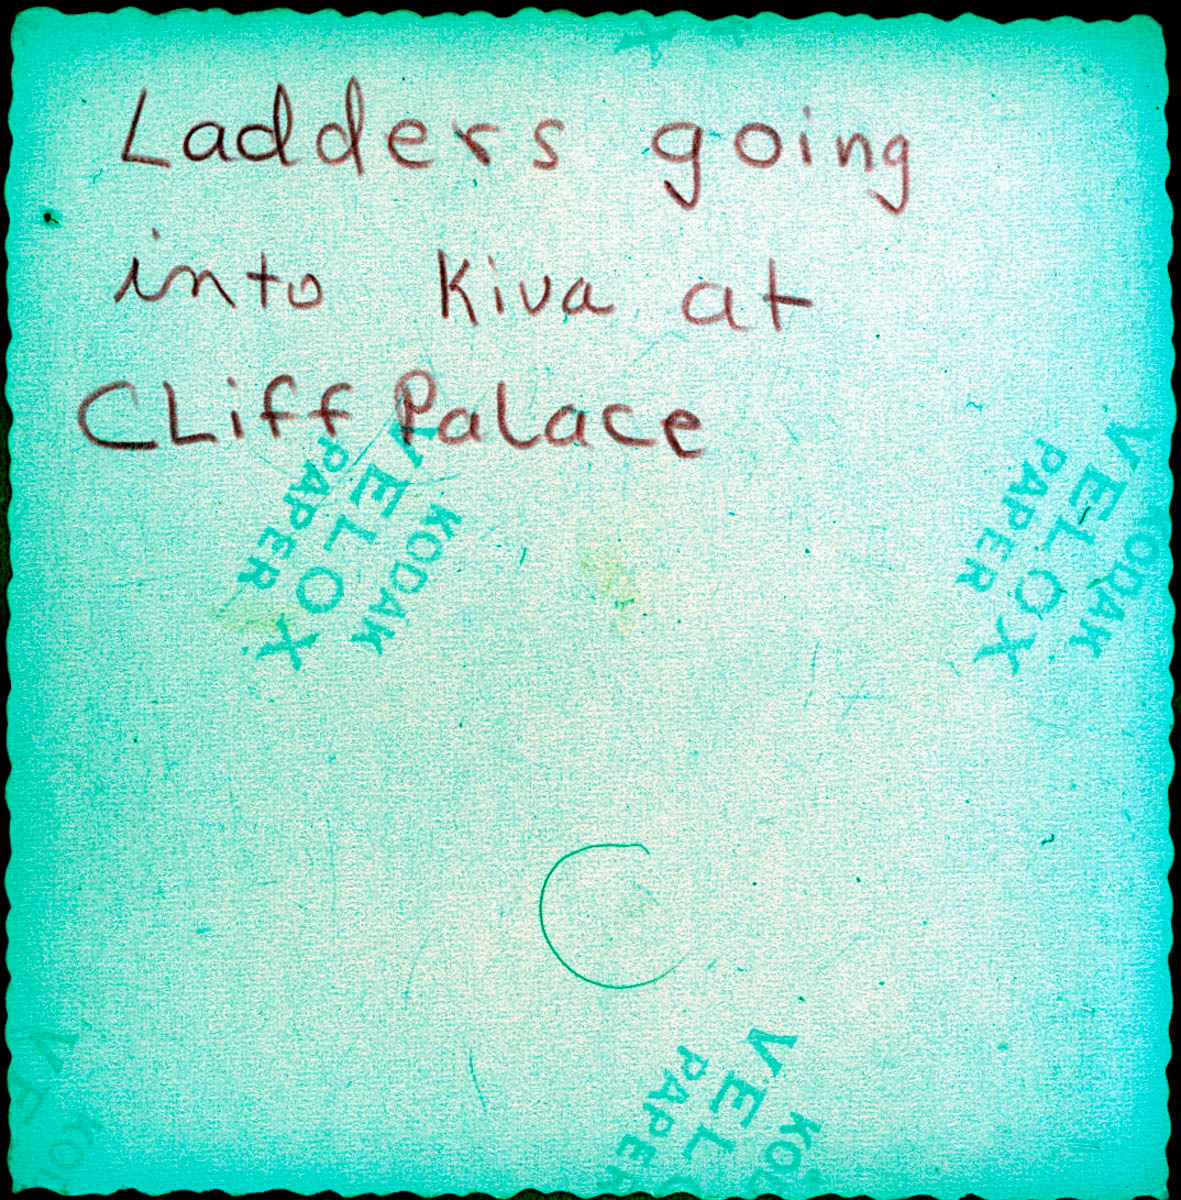 Ladders going
into Kiva at
CLiff Palace
KODAK
VELOX
PAPER
KODAK
VELOX
PAPER